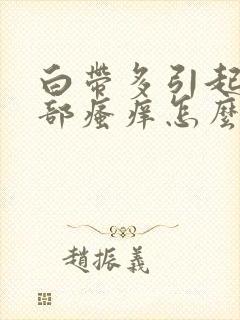 白带多引起
部瘙痒怎麼
趙振義